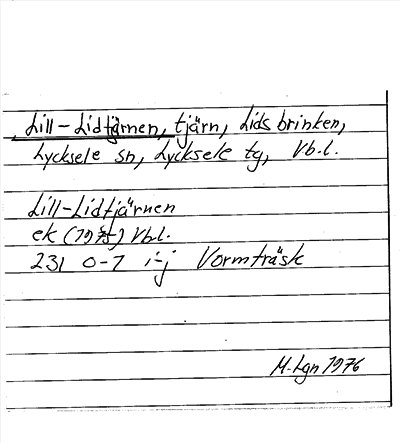 Lill-Lidtjärnen, tjärn, Lidsbrinken,
Lycksele sn, Lycksele tg, Vb.l.
Lill-Lidtjärnen
ek (1975) Vb.l.
231 0-1 i-j Vormträsk
M. Lgn 1976